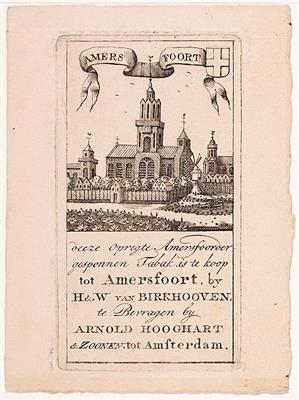 AMERS FOORT
deeze Opregte Amersfoorder
gesponnen Tabak is te koop
tot Amersfoort, by
H&W VAN BIRKHOOVEN,
te Bevragen by
ARNOLD HOOGHART
& ZOONEN. tot Amsterdam.